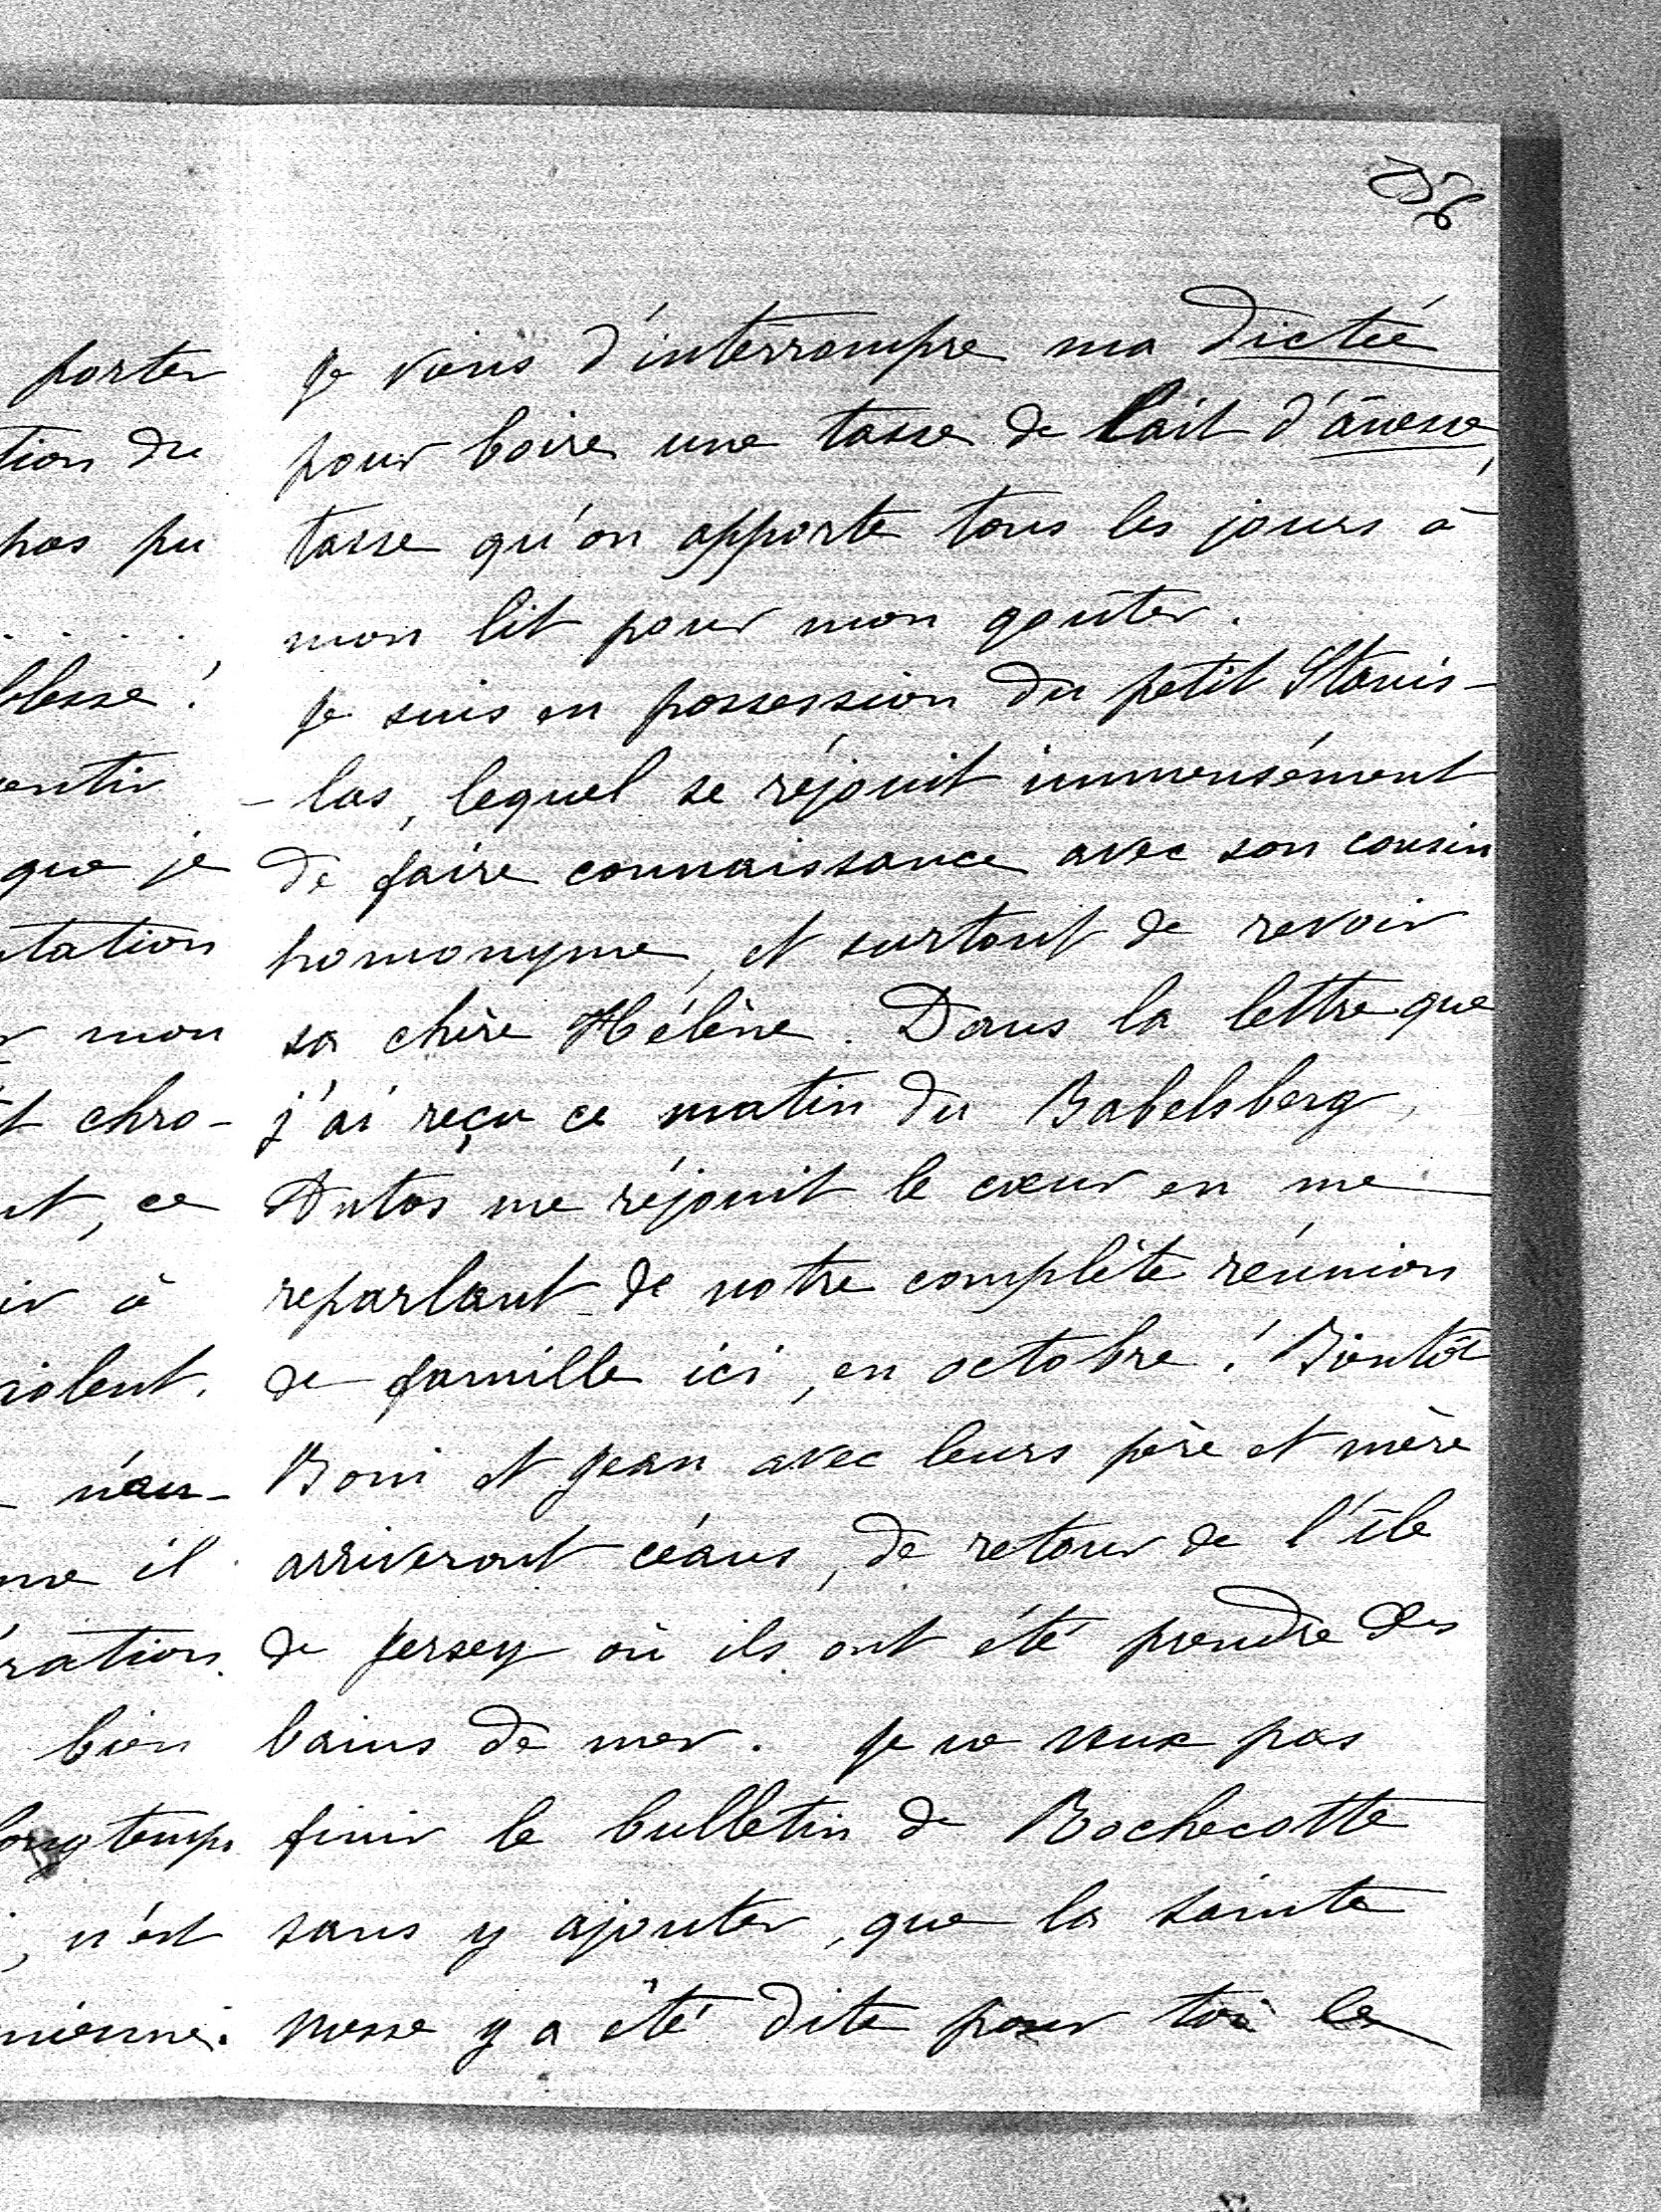 256
porter
tion du
pas pu
. . . . ,
blesse !
entir
que je
tation
mon
t chro-
nt, ce
ir à
iolent.
- n'au-
me il
ration.
bien
longtemps
, n'est
mienne.
Je viens d'interrompre ma dictée
pour boire une tasse de lait d'ânesse,
tasse qu'on apporte tous les jours à
mon lit pour mon goûter.
Je suis en possession du petit Stanis-
-las, lequel se réjouit immensément
de faire connaissance avec son cousin
homonyme, et surtout de revoir
sa chère Hélène. Dans la lettre que
j'ai reçu ce matin du Babelsberg,
Antos me réjouit le cœur en me
reparlant de notre complète réunion
de famille ici, en octobre ! Bientôt
Boni et Jean avec leurs père et mère
arriveront céans, de retour de l'île
de Jersey où ils ont été prendre des
bains de mer. Je ne veux pas
finir le bulletin de Rochecotte
sans y ajouter, que la sainte
messe y a été dite pour toi le